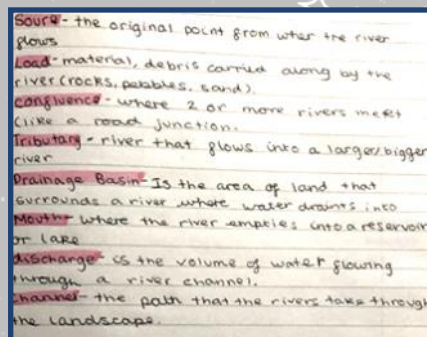 Source - the original point from wher the river
flows
Load - material, debris carried along by the
river (rocks, pebbles, sand).
Confluence - where 2 or more rivers meet
(like a road junction.
Tributary - river that flows into a larger/bigger
river
Drainage Basin - Is the area of land that
surrounds a river where water draints into
Mouth - where the river empties into a reservoir
or lake
discharge - is the volume of water flowing
through a river channel.
Channel - the path that the rivers take through
the landscape.